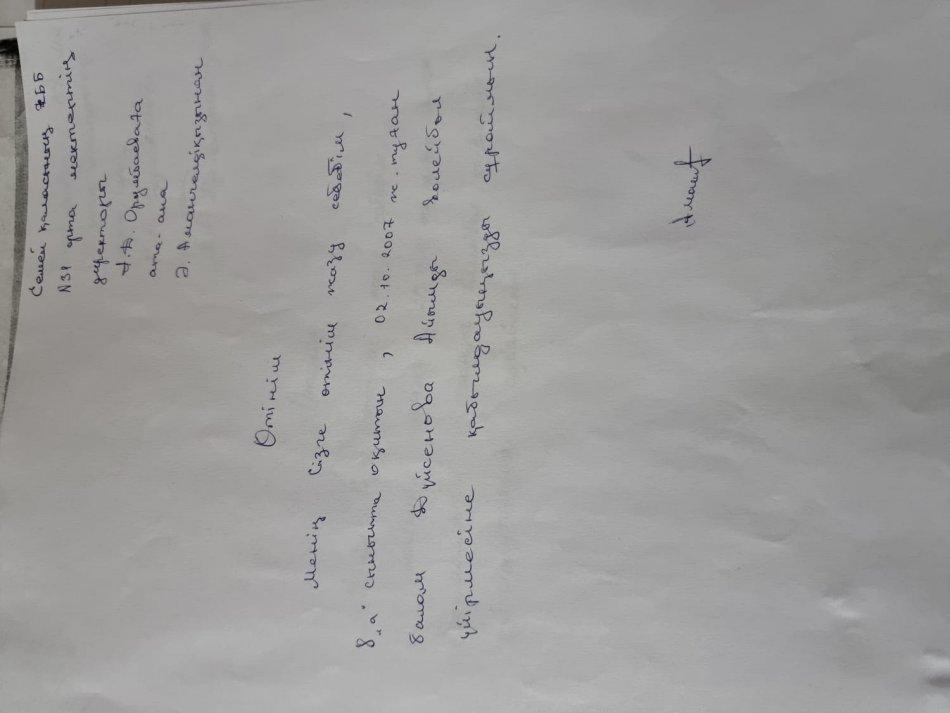 Семей қаласының ЖББ
№31 орта мектептің
директоры
А.Б. Орумбаевата
ата-ана
Ә. Аманчалдіқызынан
Өтініш
Менің Сізге өтініш жазу себебім,
8 „а" сыныпта оқитын, 02.10.2007 ж. туған
балам Дүйсенова Айымды волейбол
үйірмесіне қабылдауыңызды сұраймын.